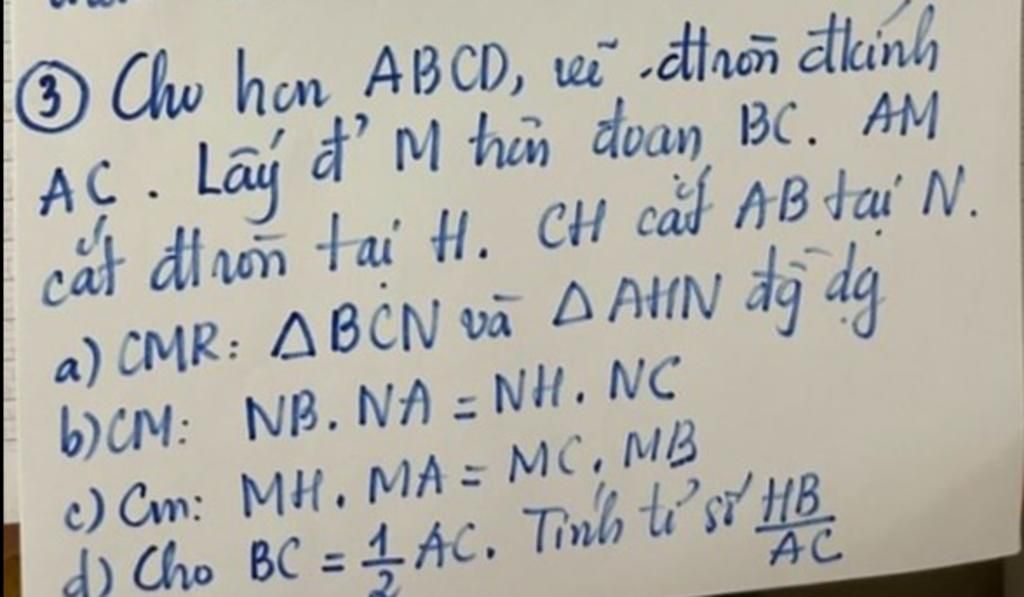 ③ Cho hcn ABCD, vẽ đtròn đkính
AC. Lấy đ' M trên đoạn BC. AM
cắt đtròn tại H. CH cắt AB tại N.
a) CMR: △BCN và △AHN đg dg
b) CM: NB. NA = NH. NC
c) Cm: MH. MA = MC. MB
d) Cho BC = 1/2 AC. Tính tỉ số HB/AC